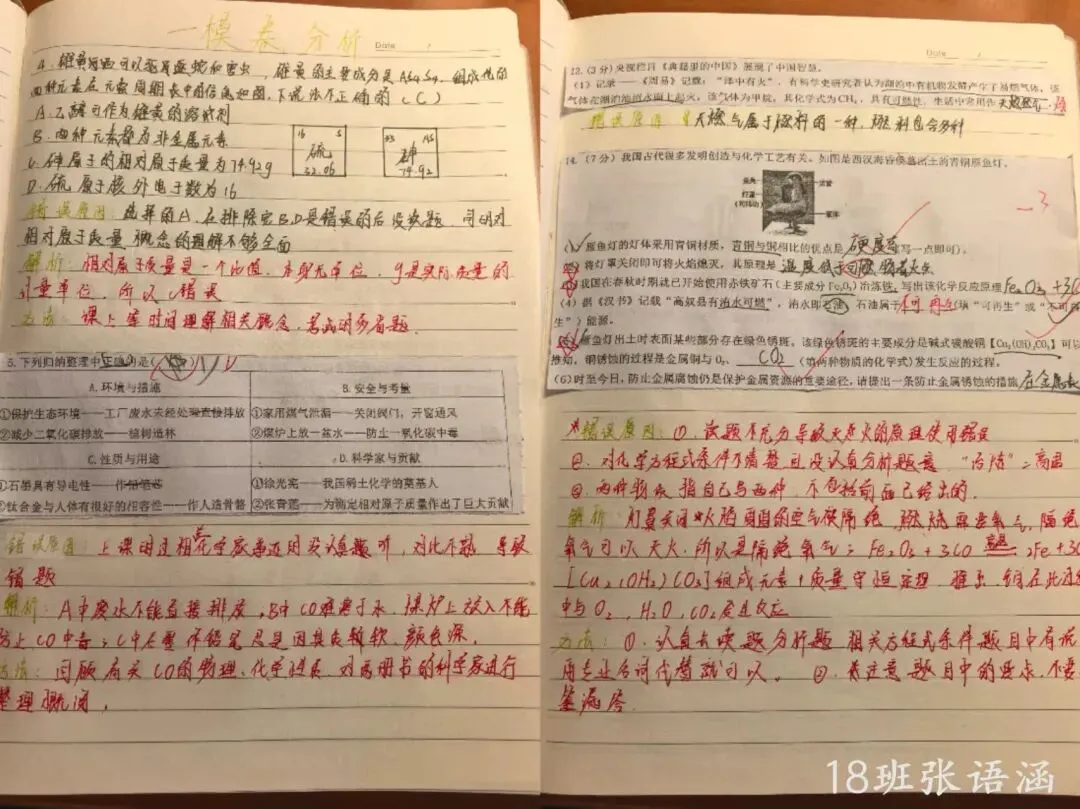 一模卷分析
Date
4.雄黄
可以驱
蛇和害虫，雄黄的主要成分是As4S4，组成它的
两种元素在元素周期表中的信息如图，下
说法不正确的（C）
A.乙
可作为雄黄的溶剂
B.两种元素都为非金属元素
C.砷原子的相对原子质量为74.92g
D.硫原子核外电子数为16
16 S
硫
32.06
33 AS
砷
74.92
错误原因：选择的A，在排除完B.D是错误的后没
题，同时对
相对原子质量概念的理解不够全面
解析：相对原子质量是一个比值，本身无单位，g是实际质量的
计量单位，所以C错误
方法：课上
时间理解相关概念，考试时多
题.
5.下列归纳整理中正确的是
A.环境与措施
B.安全与考量
①保护生态环境——工厂废水未经处理直接排放
②减少二氧化碳排放——植树造林
①家用煤气泄漏——关闭阀门，开窗通风
②煤炉上放一盆水——防止一氧化碳中毒
C.性质与用途
D.科学家与贡献
①石墨具有导电性——作铅笔芯
②钛合金与人体有很好的相容性——作人造骨骼
①徐光宪——我国稀土化学的奠基人
②张青莲——为测定相对原子质量作出了巨大贡献
错误原因：上课时
相关
家
时没认真听，
导致
错题
解析：A中废水不能直接排放，B中CO难溶于水，煤炉上放入不能
防止CO中毒；C中石墨作铅笔
是因其质较软，颜色深，
方法：回顾有关CO的物理、化学性质，对两册书的科学家进行
整理
Date
12.(3分)央视栏目《典籍里的中国》展现了中国智慧。
(1)记录——《周易》记载：“泽中有火”，有科学史研究者认为湖泊中有机物发酵产生了易燃气体，该
气体在湖泊池沼水面上起火，该气体为甲烷，其化学式为CH4，具有可燃性，生活中常用作天然气
错误原因：天燃气属于燃料的一种，燃料包含多种
14.(7分)我国古代很多发明创造与化学工艺有关。如图是西汉海昏侯墓出土的青铜雁鱼灯。
-3
(1)雁鱼灯的灯体采用青铜材质，青铜与铜相比的优点是硬度
(写一点即可)。
(2)将灯罩关闭即可将火焰熄灭，其原理是温度低于可燃物着火点
(3)我国在春秋时期就已开始使用赤铁矿石(主要成分Fe2O3)冶炼铁，写出该化学反应原理Fe2O3+3CO
(4)据《汉书》记载“高奴县有洧水可燃”，洧水即石油，石油属于不可再生(填“可再生”或“不可再
生”)能源。
(5)雁鱼灯出土时表面某些部分存在绿色锈斑，该绿色锈斑的主要成分是碱式碳酸铜【Cu2(OH)2CO3】可以
推知，铜锈蚀的过程是金属铜与O2、CO2(填两种物质的化学式)发生反应的过程。
(6)时至今日，防止金属腐蚀仍是保护金属资源的重要途径，请提出一条防止金属锈蚀的措施 在金属表
错误原因：①.读题不充分导致灭火的原理使用错误
②.对化学方程式条件不清楚且没认真分析题意，“冶炼”=高温
③.两种物质指自己写两种，不包括前面已给出的.
解析：灯罩关闭火焰周围的空气被隔绝，燃烧需要氧气，隔绝
氧气可以灭火.所以是隔绝氧气；Fe2O3+3CO 高温 2Fe+3C
[Cu2(OH2)CO3]组成元素，质量守恒定理，推出，铜在此过程
中与O2、H2O、CO2发生反应
方法：①.认真去读题分析题，相关方程式条件题目中有
用专业名词代替就可以。②.关注意题目中的要求，不要
漏答.
18班张语涵